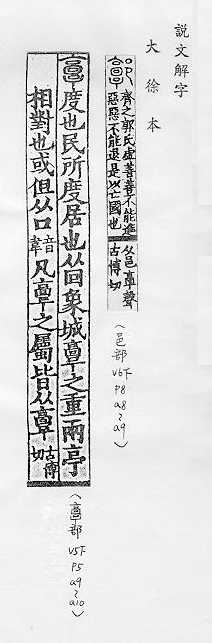 說文解字
大徐本
齊之郭氏虛善善不能進
惡惡不能退是以亡國也
从邑𩫏聲
古博切
(邑部 V6下 P8 a8~a9)
𩫏度也民所度居也从回象城𩫏之重兩亭
相對也或但从口音韋凡𩫏之屬皆从𩫏古博切
(𩫏部 V5下 P5 a9~a10)